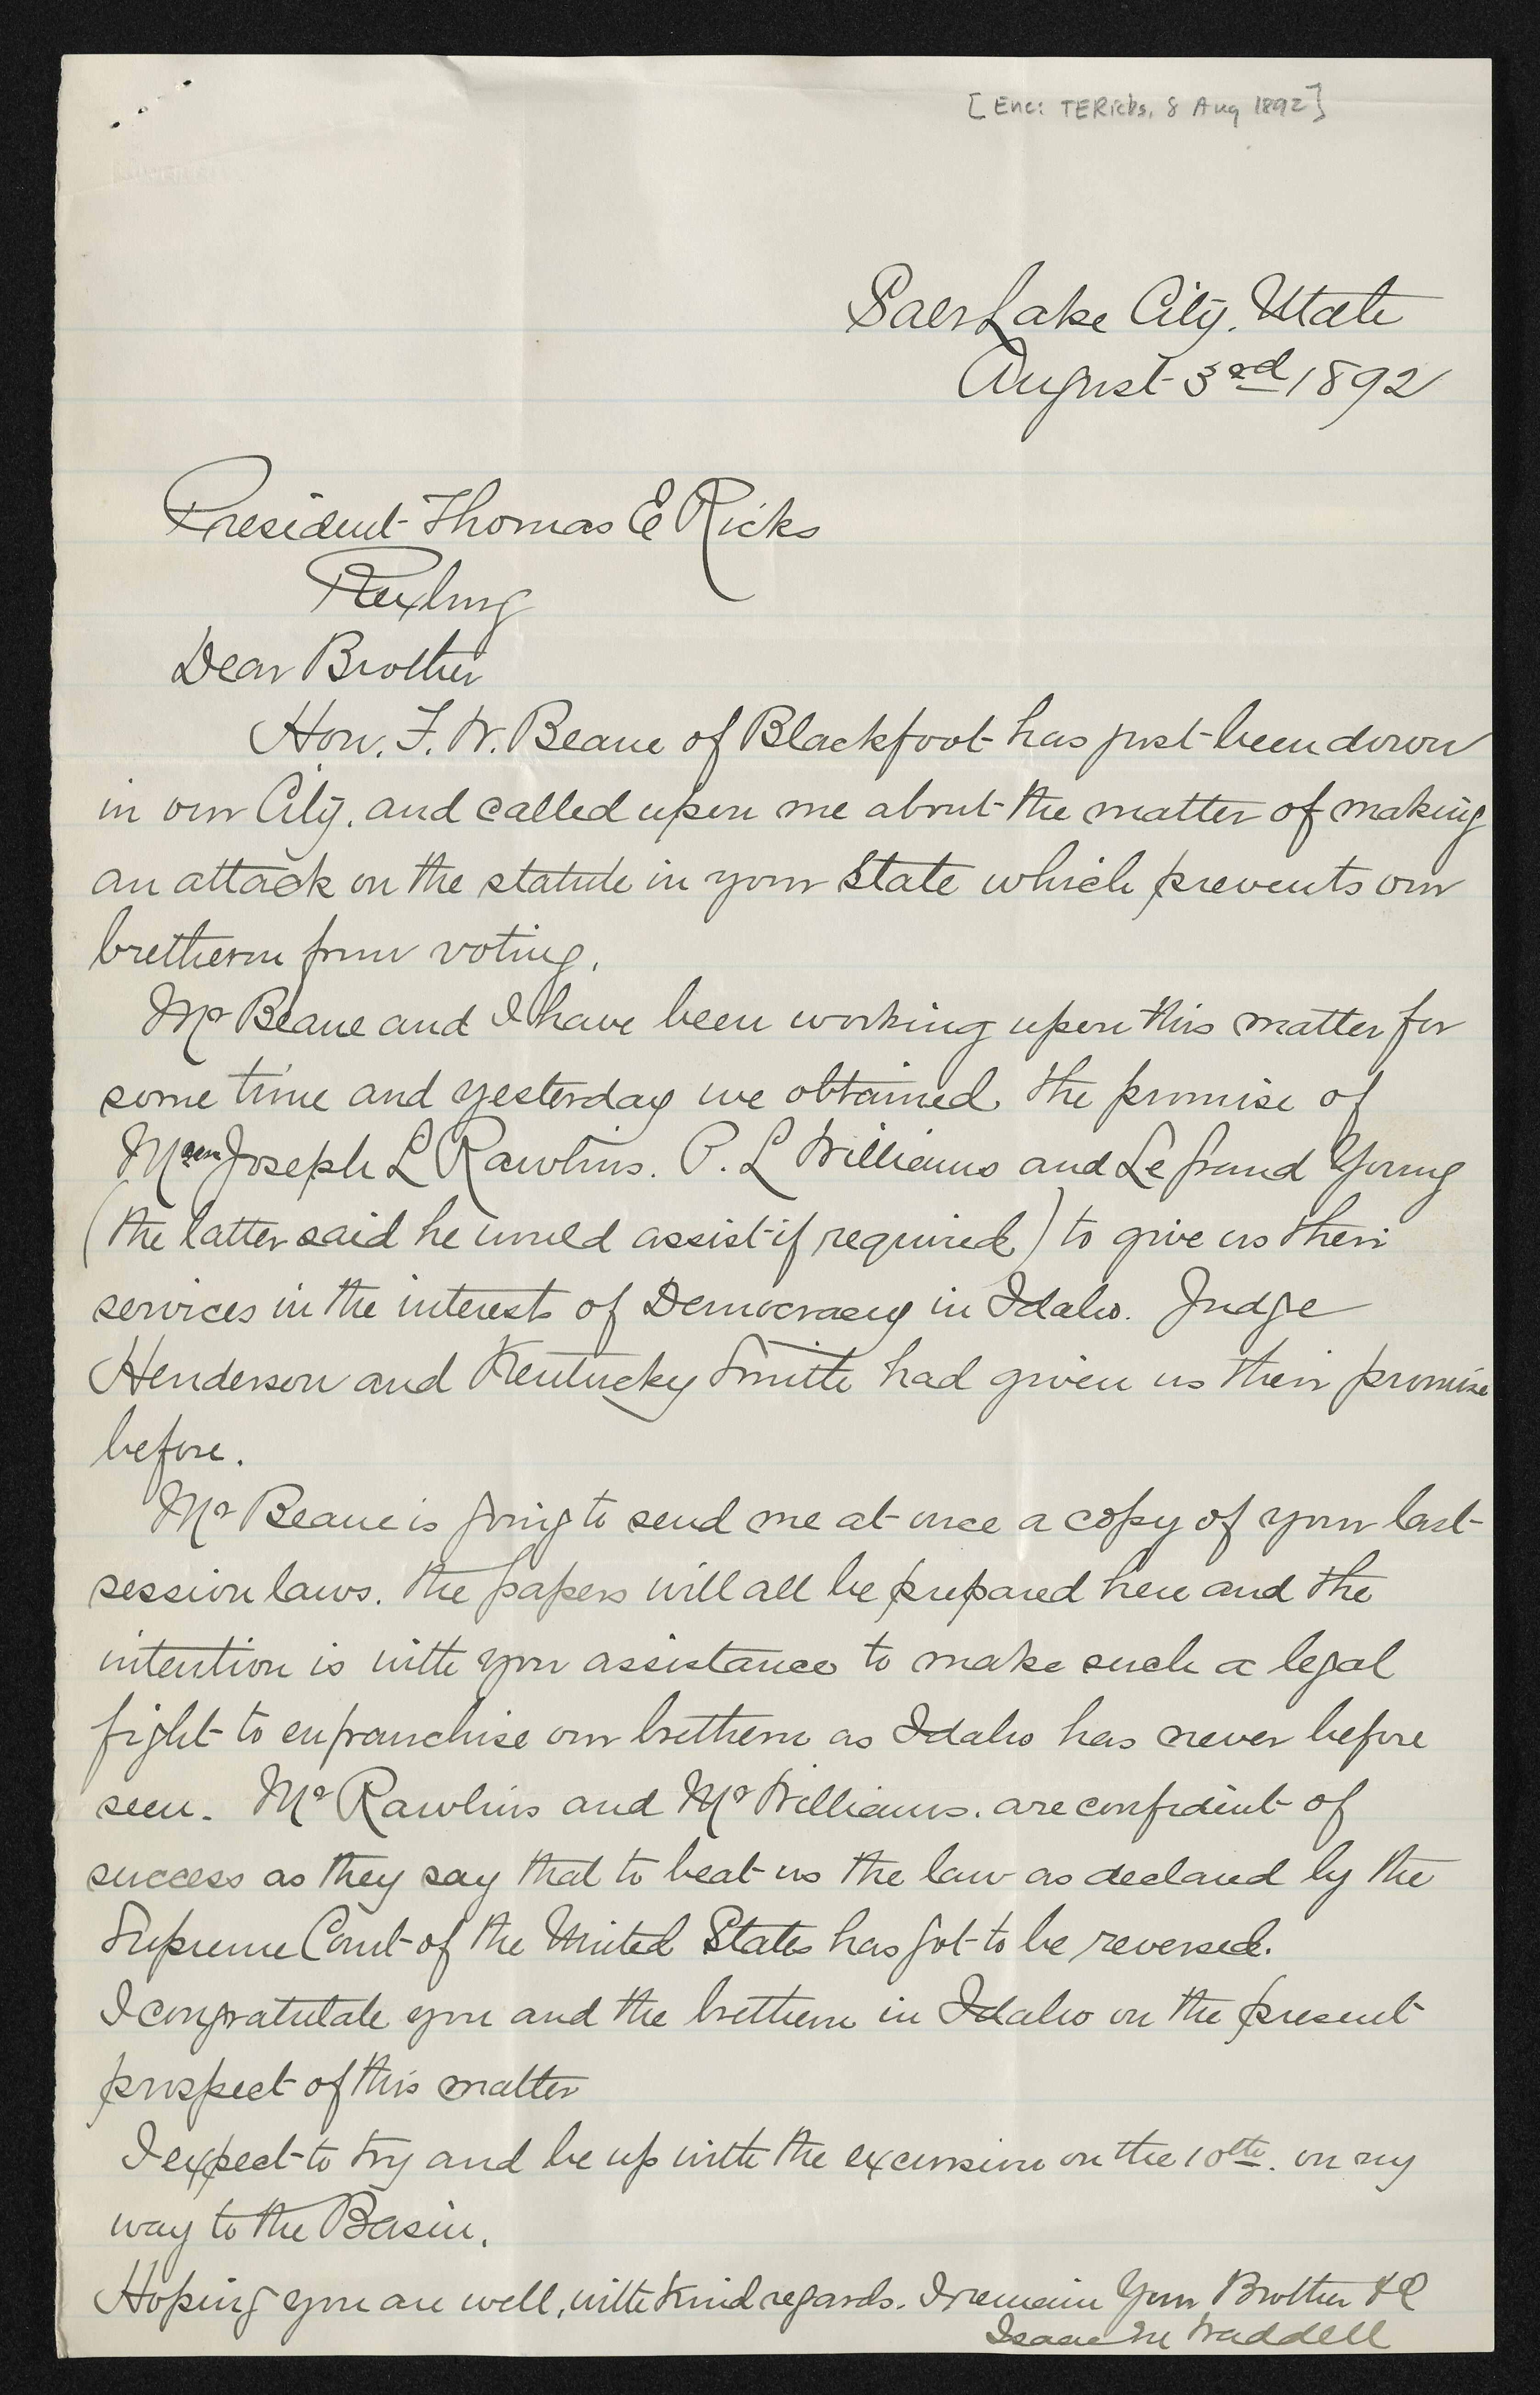 [Enc: TERicks, 8 Aug 1892]
Salt Lake City. Utah
August 3rd 1892
President Thomas E Ricks
Rexburg
Dear Brother
Hon. F. W. Beane of Blackfoot has just been down
in our City. and called upon me about the matter of making
an attack on the statute in your State which prevents our
bretheren from voting.
Mr Beane and I have been working upon this matter for
some time and yesterday we obtained the promise of
Messrs Joseph L Rawlins. P. L Williams and Le Grand Young
(the latter said he would assist if required) to give us their
services in the interests of Democracy in Idaho. Judge
Henderson and Kentucky Smith had given us their promise
before.
Mr Beane is going to send me at once a copy of your last
session laws. the papers will all be prepared here and the
intention is with your assistance to make such a legal
fight to enfranchise our brethern as Idaho has never before
seen. Mr Rawlins and Mr Williams. are confident of
success as they say that to beat us the law as declared by the
Supreme Court of the United States has got to be reversed.
I congratulate you and the brethern in Idaho on the present
prospect of this matter
I expect to try and be up with the excursion on the 10th. on my
way to the Basin.
Hoping you are well, with kind regards. I remain Your Brother &c
Isaac M Waddell